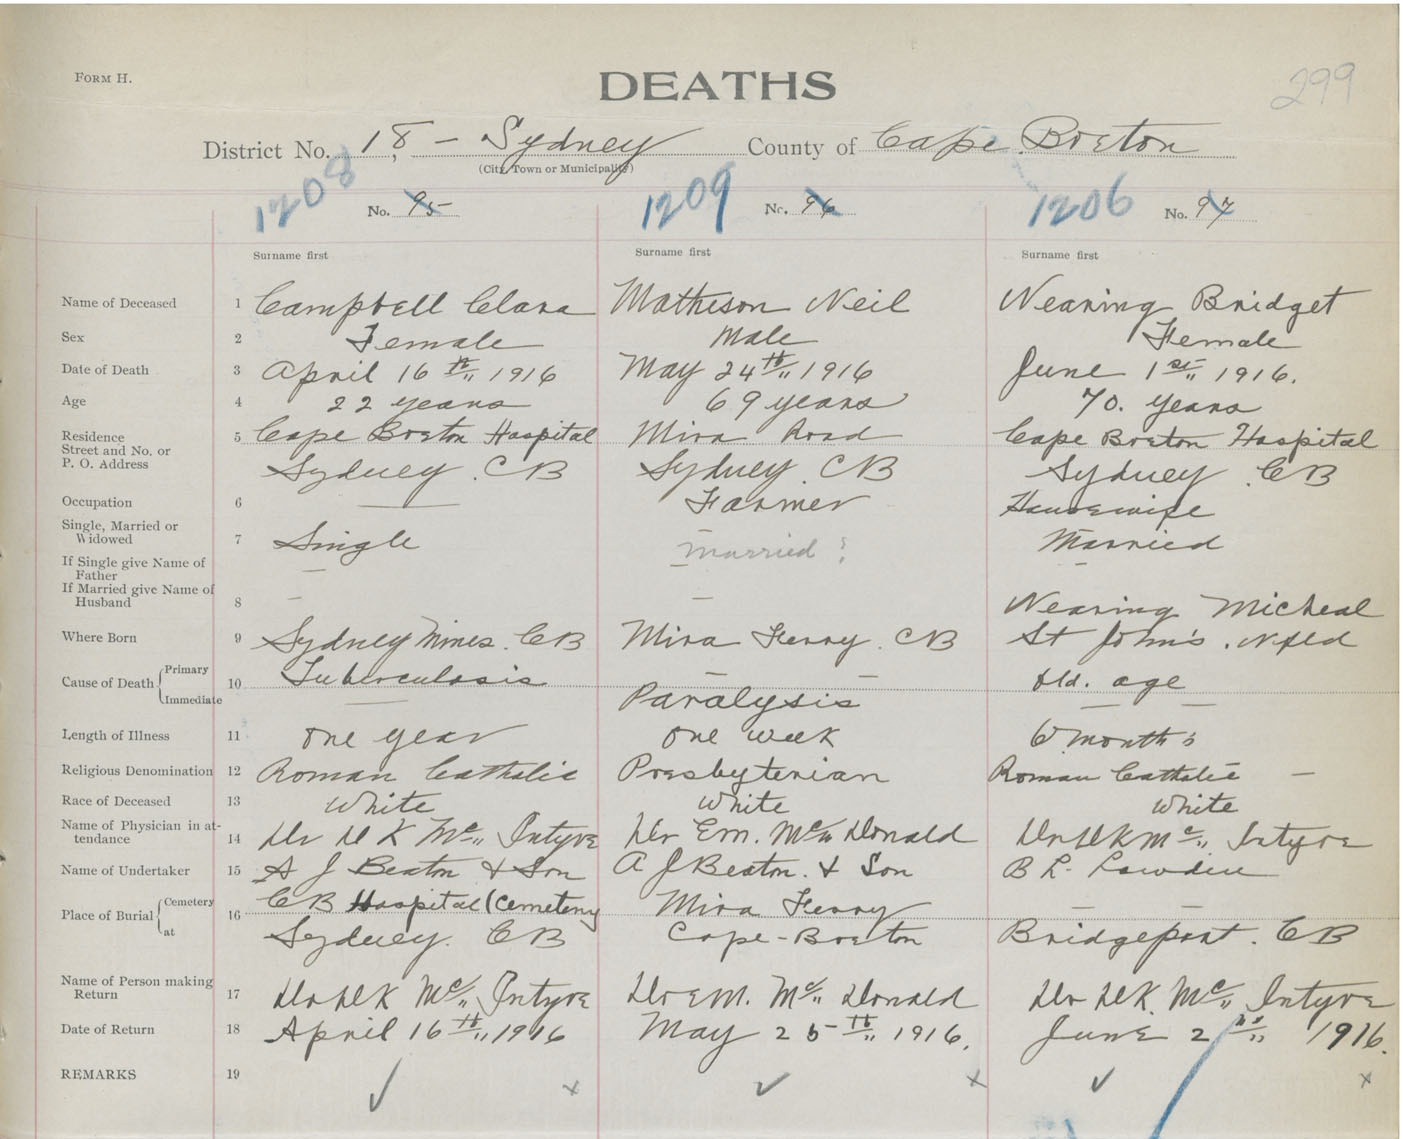 FORM H.
DEATHS
299
District No. 18, - Sydney County of Cape Breton
(City, Town or Municipality)
1208 No. 95 1209 No. 96 1206 No. 97
Surname first Surname first Surname first
Name of Deceased 1 Campbell Clara Matheson Neil Nearing Bridget
Sex 2 Female Male Female
Date of Death 3 April 16th 1916 May 24th 1916 June 1st 1916.
Age 4 22 years 69 years 70. years
Residence 5 Cape Breton Hospital Mira Road Cape Breton Hospital
Street and No. or
P. O. Address Sydney. CB Sydney. CB Sydney. CB
Occupation 6 — Farmer Housewife
Single, Married or
Widowed 7 Single married? Married
If Single give Name of
Father — —
If Married give Name of
Husband 8 — — Nearing Micheal
Where Born 9 Sydney Mines. CB Mira Ferry. CB St John's. Nfld
Cause of Death { Primary 10 Tuberculosis — — Old. age
Immediate — Paralysis — —
Length of Illness 11 one year one week 6 months
Religious Denomination 12 Roman Catholic Presbyterian Roman Catholic —
Race of Deceased 13 White White White
Name of Physician in at-
tendance 14 Dr D K Mc Intyre Dr Em. Mc Donald Dr D K Mc Intyre
Name of Undertaker 15 A J Beaton & Son A J Beaton. & Son B L.
Place of Burial { Cemetery 16 CB Hospital (Cemeteny Mira Ferry — —
at Sydney. CB Cape-Breton Bridgeport. CB
Name of Person making
Return 17 Dr D K Mc Intyre Dr E M. Mc Donald Dr D K. Mc Intyre
Date of Return 18 April 16th 1916 May 25th 1916. June 2nd 1916.
REMARKS 19 ✓ x ✓ x ✓ x